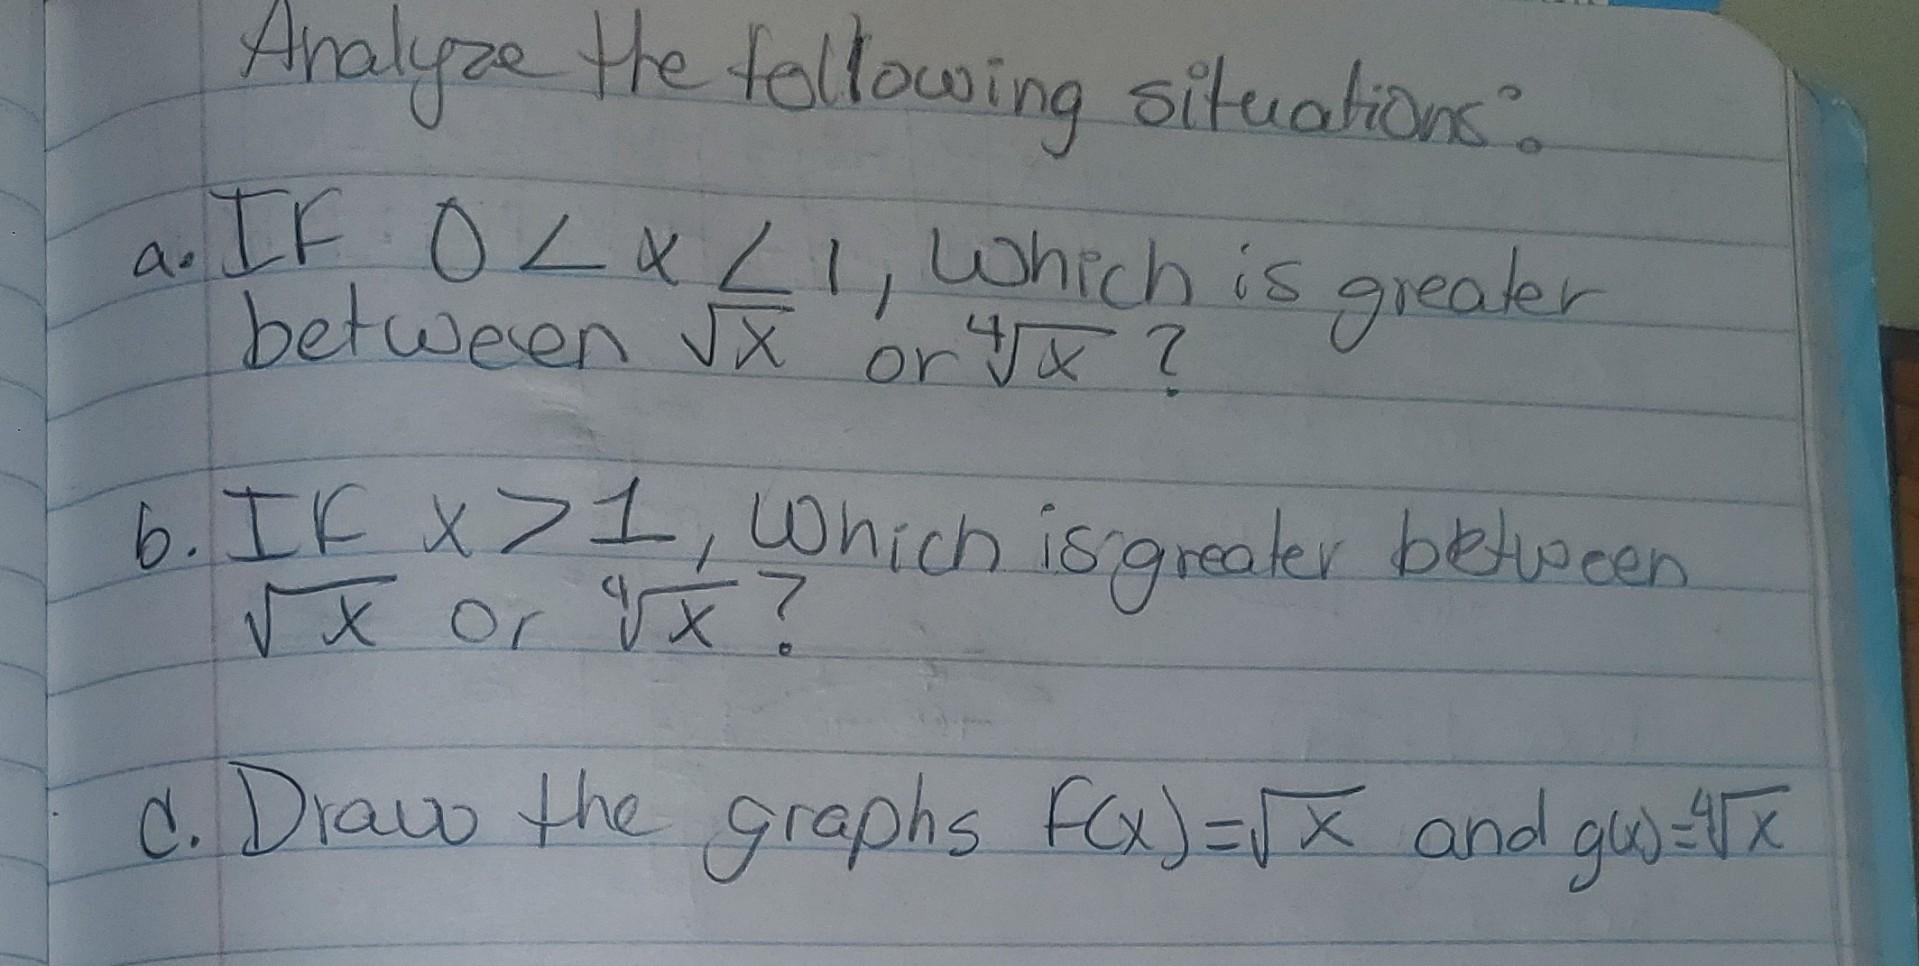 Analyze the following situations:
a. If 0 < x < 1, Which is greater
between √x or ⁴√x ?
b. If x > 1, Which is greater between
√x or ⁴√x ?
c. Draw the graphs f(x)=√x and g(x)=⁴√x